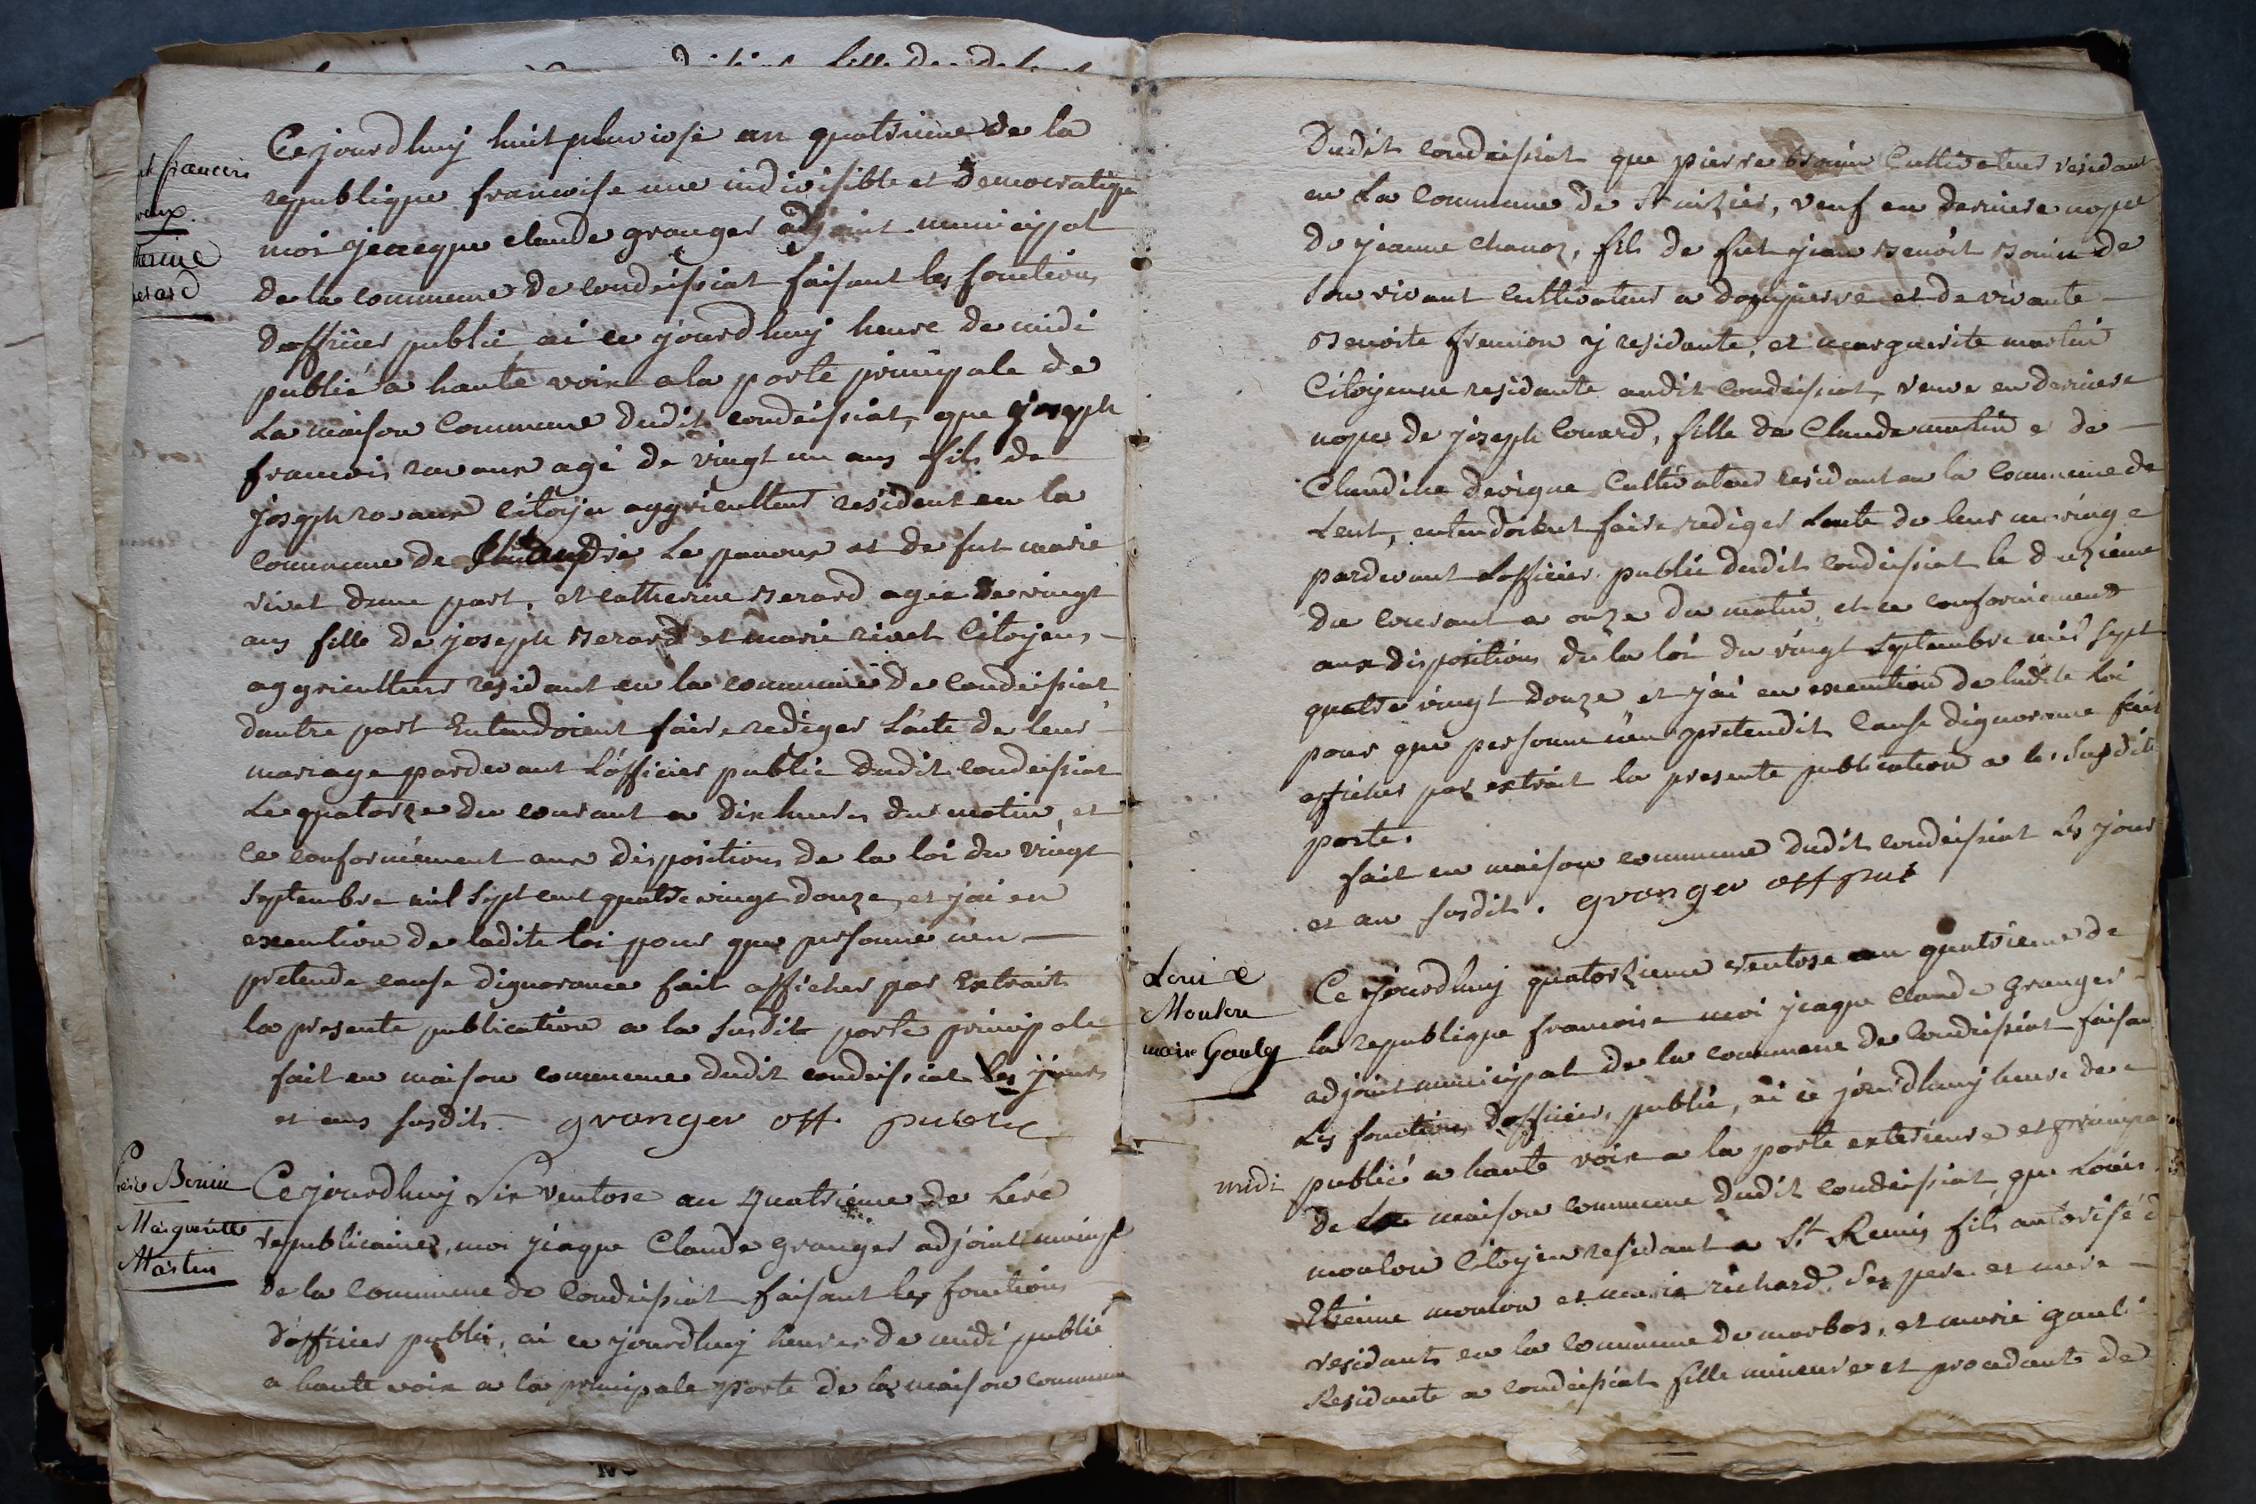 Ce jourdhuy huit pluviose an quatrieme de la
republique francoise une indivisible et Democratique
moi jacque claude granger adjoint municipal
de la commune de condeissiat faisant les fonctions
dofficier public ai ce jourdhuy heure de midi
publié a haute voix a la porte principale de
La maison Commune dudit condeissiat, que joseph
francois ravaux agé de vingt un ans fils de
joseph ravaux citoyen aggriculteur resident en la
commune de St andré Le panoux et de fut marie
rivet dune part, et catherine Berard agée de vingt
ans fille de joseph Berard et marie rivet Citoyens
aggriculteurs residant en la commune de Condeissiat
dautre part Entendoient faire rediger Lacte de leur
mariage pardevant Lofficier public dudit condeissiat
Le quatorze du courant a dix heures du matin, et
ce conformément aux dispositions de la loi du vingt
septembre mil sept cent quatre vingt douze, et jai en
execution de ladite loi pour que personne nen
pretende cause dignorance fait afficher par Extrait
la presente publication a la susdit porte principale
fait en maison commune dudit condeissiat les jours
et ans susdits. granger off public
francois
Berard
Bonin
Marguerite
Martin
Ce jourdhuy Six ventose an Quatrieme de Lere
republicaine, moi jacque Claude granger adjoint municipl
de la commune de Condeissiat faisant les fonctions
d'officier public, ai ce jourdhuy heures de midi publié
a haute voix a la principale porte de la maison commune
Dudit condeissiat que pierre bonin Cultivateur residant
en La Commune de St nizier, veuf en derniere nopce
de jeanne Chanoz, fils de fut jean Benoit Bonin de
son vivant cultivateur a dompierre et de vivante
Benoite fremion y residante, et marguerite martin
Citoyenne residante audit Condeissiat, veuve en derniere
nopce de joseph Couard, fille de Claude martin e de
Claudine devigne Cultivateur residant en la Commune de
Lent, entendoient faire rediger Lacte de leur mariage
pardevant Lofficier public dudit condeissiat le douzieme
du courant a onze du matin, et ce conformement
aux dispositions de la loi du vingt septembre mil sept
quatre vingt douze et jai en execution de ladite loi
pour que personne n'en pretendit Cause dignorance fait
afficher par extrait la presente publication a la susdite
porte.
fait en maison commune dudit condeissiat les jour
et an susdit. granger off pub
Louis
Moulon
marie Gauly
midi
Ce jourdhuy quatorzieme ventose an quatrieme de
la republique francoise moi jcaque Claude Granger
adjoint municipal de la commune de Condeissiat faisan
Les fonctions dofficier public, ai ce jourdhuy heure de
publié a haute voix a la porte exterieure et principa
de la maison commune dudit condeissiat, que Louis
moulon Citoyen residant a St Remis fils autorisé d
Etienne moulon et marie richard Ses pere et mere
residants en la commune de marbos, et marie gauli
Residante a condeissiat fille mineure et procedante de